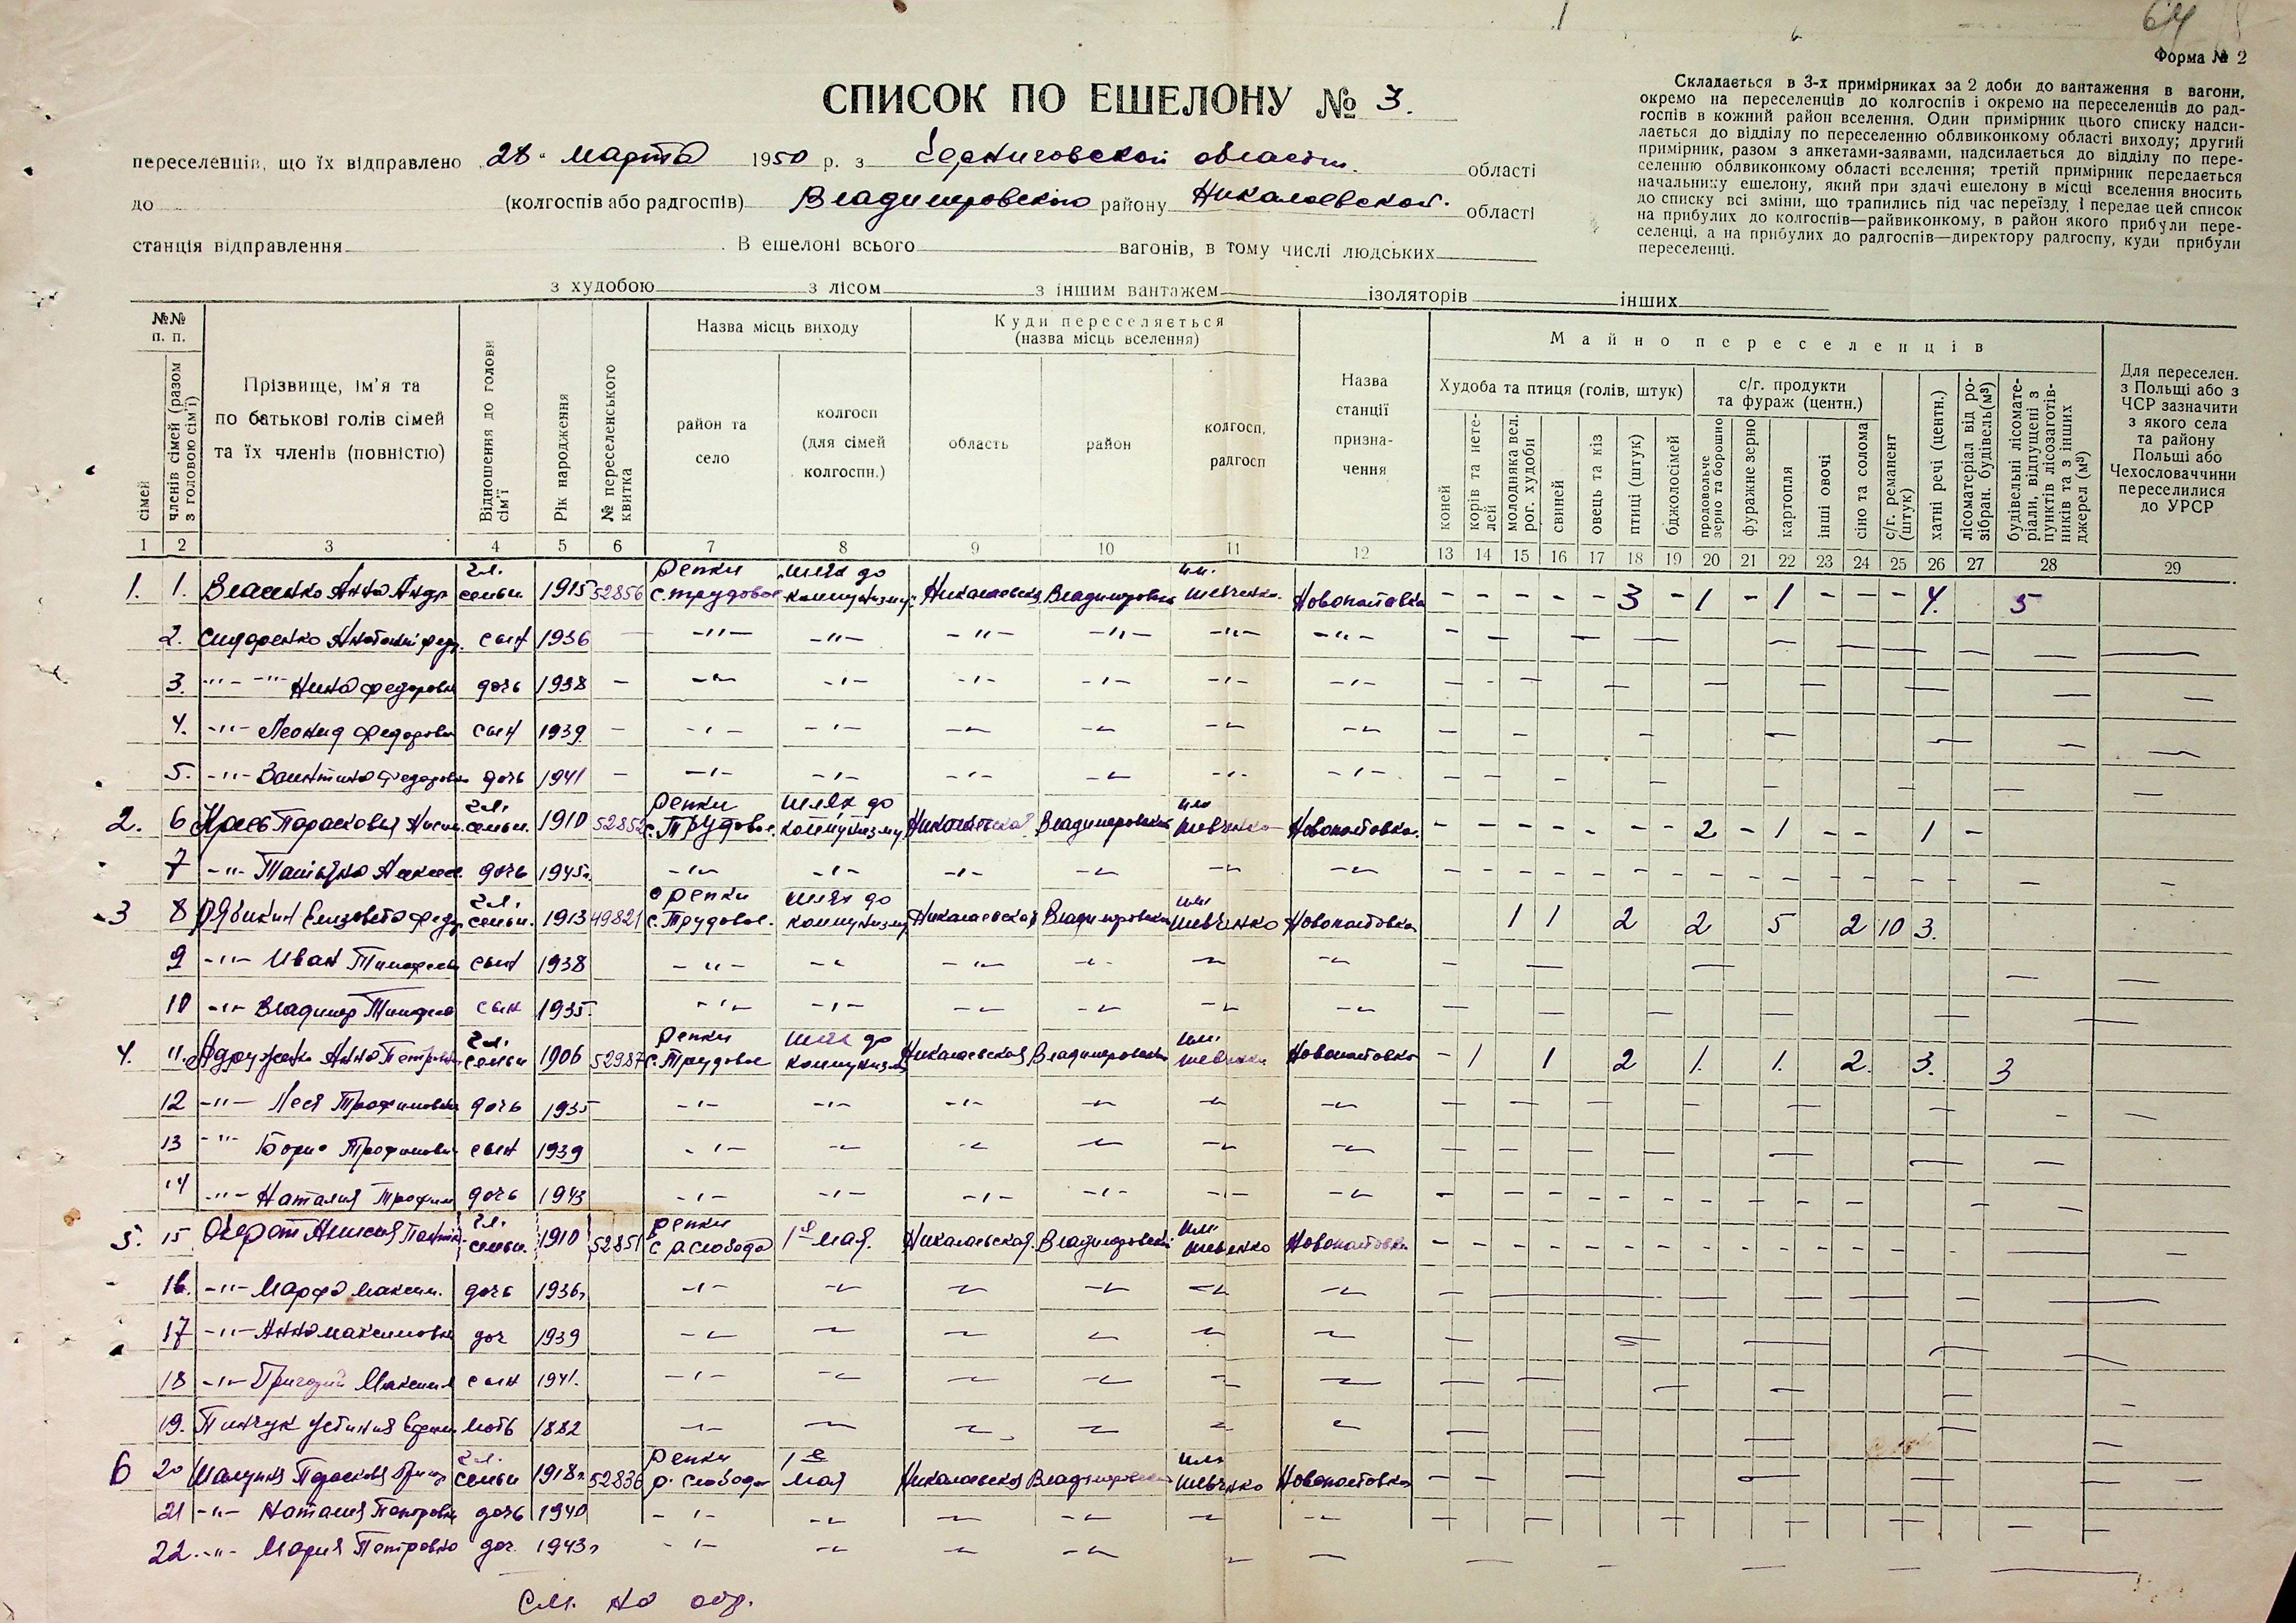 64
Форма № 2
СПИСОК ПО ЕШЕЛОНУ № 3.
Складається в 3-х примірниках за 2 доби до вантаження в вагони,
окремо на переселенців до колгоспів і окремо на переселенців до рад-
госпів в кожний район вселення. Один примірник цього списку надси-
лається до відділу по переселенню облвиконкому області виходу; другий
примірник, разом з анкетами-заявами, надсилається до відділу по пере-
селенню облвиконкому області вселення; третій примірник передається
начальнику ешелону, який при здачі ешелону в місці вселення вносить
до списку всі зміни, що трапились під час переїзду, і передає цей список
на прибулих до колгоспів—райвиконкому, в район якого прибули пере-
селенці, а на прибулих до радгоспів—директору радгоспу, куди прибули
переселенці.
переселенців, що їх відправлено „28" марта 1950 р. з Черниговской области. області
до (колгоспів або радгоспів) Владимировского району Николаевской. області
станція відправлення . В ешелоні всього вагонів, в тому числі людських
з худобою з лісом з іншим вантажем ізоляторів інших
№№ п. п.
сімей
членів сімей (разом з головою сім'ї)
Прізвище, ім'я та
по батькові голів сімей
та їх членів (повністю)
Відношення до голови сім'ї
Рік народження
№ переселенського квитка
Назва місць виходу
район та
село
колгосп
(для сімей
колгоспн.)
Куди переселяється
(назва місць вселення)
область
район
колгосп,
радгосп
Назва
станції
призна-
чення
Майно переселенців
Худоба та птиця (голів, штук)
коней
корів та нете-
лей
молодняка вел.
рог. худоби
свиней
овець та кіз
птиці (штук)
бджолосімей
с/г. продукти
та фураж (центн.)
продовольче
зерно та борошно
фуражне зерно
картопля
інші овочі
сіно та солома
с/г. реманент
(штук)
хатні речі (центн.)
лісоматеріал від ро-
зібран. будівель (м³)
будівельні лісомате-
ріали, відпущені з
пунктів лісозаготів-
ників та з інших
джерел (м³)
Для переселен.
з Польщі або з
ЧСР зазначити
з якого села
та району
Польщі або
Чехословаччини
переселилися
до УРСР
1 2 3 4 5 6 7 8 9 10 11 12 13 14 15 16 17 18 19 20 21 22 23 24 25 26 27 28 29
гл. Репки шлях до им.
1. 1. Власенко Анна Андр семьи 1915 52856 с. трудовое коммунизму Николаевская Владимировск шевченко Новополтовка - - - - - 3 - 1 - 1 - - - 4. 5
2. Сидоренко Анатолий Фед. сын 1936 — -"- -"- -"- -"- -"- -"-
3. -"- -"- Нина Федоровн дочь 1938 -
4. -"- Леонид Федорови сын 1939 -
5. -"- Валентина Федоровн дочь 1941 -
гл. Репки шлях до им
2. 6 Парасковья семьи. 1910 52852 с. Трудовое. коммунизму Николаевская Владимировская шевченко Новополтовка. - - - - - - - 2 - 1 - - 1 -
7 -"- Татьяна Алексее. дочь 1945г.
гл. Репки шлях до им
3 8 Елизовета Федр семьи. 1913 49821 с. Трудовое. коммунизму Николаевская Владимировская шевченко Новополтовка 1 1 2 2 5 2 10 3.
9 -"- Иван Тимофеев сын 1938
10 -"- Владимер Тимофеев сын 1935
гл. Репки шлях до им.
4. 11. Анна Петровн семьи 1906 52987 с. Трудовое коммунизму Николаевская Владимеровская шевченко Новополтовка - 1 1 2 1. 1. 2. 3. 3
12 -"- Леся Трофимовна дочь 1935
13 -"- Борис Трофимович сын 1939
14 -"- Наталия Трофим дочь 1943
гл. Репки им.
5. 15 семьи. 1910 52851 с р. слобода 1е мая. Николаевская. Владимировский шевченко Новополтовка
16. -"- Марфа Максим. дочь 1936г
17 -"- Анна максимовн доч 1939
18 -"- Григорий Максим сын 1941.
19. Пинчук Устиния Ефим мать 1882
гл. Репки 1е им
6 20 семьи 1918г. 52836 р. слобода мая Николаевская Владимировская шевченко Новополтовка
21 -"- Наталия Петровн дочь 1940
22. -"- Мария Петровна доч. 1943г
См. на обр.